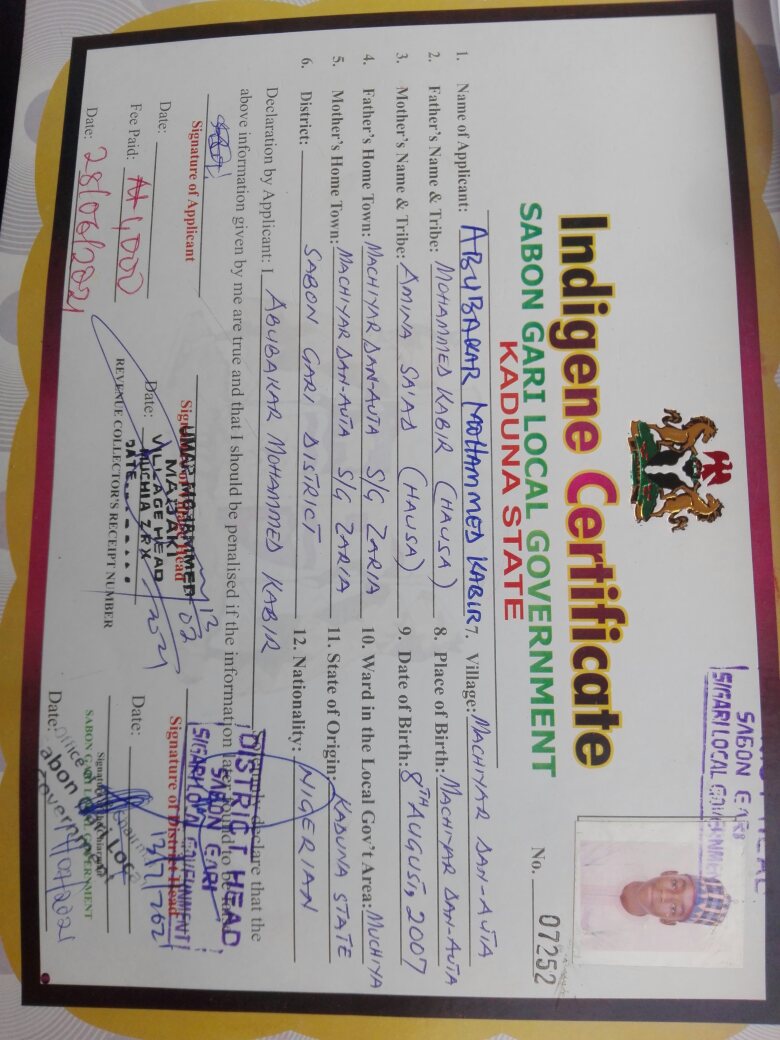 SABON GARI
S/GARI LOCAL GOVERNMENT
Indigene Certificate
SABON GARI LOCAL GOVERNMENT
KADUNA STATE
No. 07252
1. Name of Applicant: ABUBAKAR MOHAMMED KABIR
2. Father's Name & Tribe: MOHAMMED KABIR (HAUSA)
3. Mother's Name & Tribe: AMINA SA'AD (HAUSA)
4. Father's Home Town: MACHIYAR DAN-AUTA S/G ZARIA
5. Mother's Home Town: MACHIYAR DAN-AUTA S/G ZARIA
6. District: SABON GARI DISTRICT
7. Village: MACHIYAR DAN-AUTA
8. Place of Birth: MACHIYAR DAN-AUTA
9. Date of Birth: 8TH AUGUST, 2007
10. Ward in the Local Gov't Area: MUCHIYA
11. State of Origin: KADUNA STATE
12. Nationality: NIGERIAN
Declaration by Applicant: I ABUBAKAR MOHAMMED KABIR declare that the
above information given by me are true and that I should be penalised if the information found to be
Signature of Applicant
Date:
Fee Paid: ₦1,000
Date: 28/06/2021
UMAR MOHAMMED
MAJAKI
VILLAGE HEAD
MUCHIA ZRX
DATE
Head
Date:
REVENUE COLLECTOR'S RECEIPT NUMBER
DISTRICT HEAD
SABON GARI
S/GARI LOCAL GOVERNMENT
Signature of District Head
Date:
SABON GARI GOVERNMENT
Date: